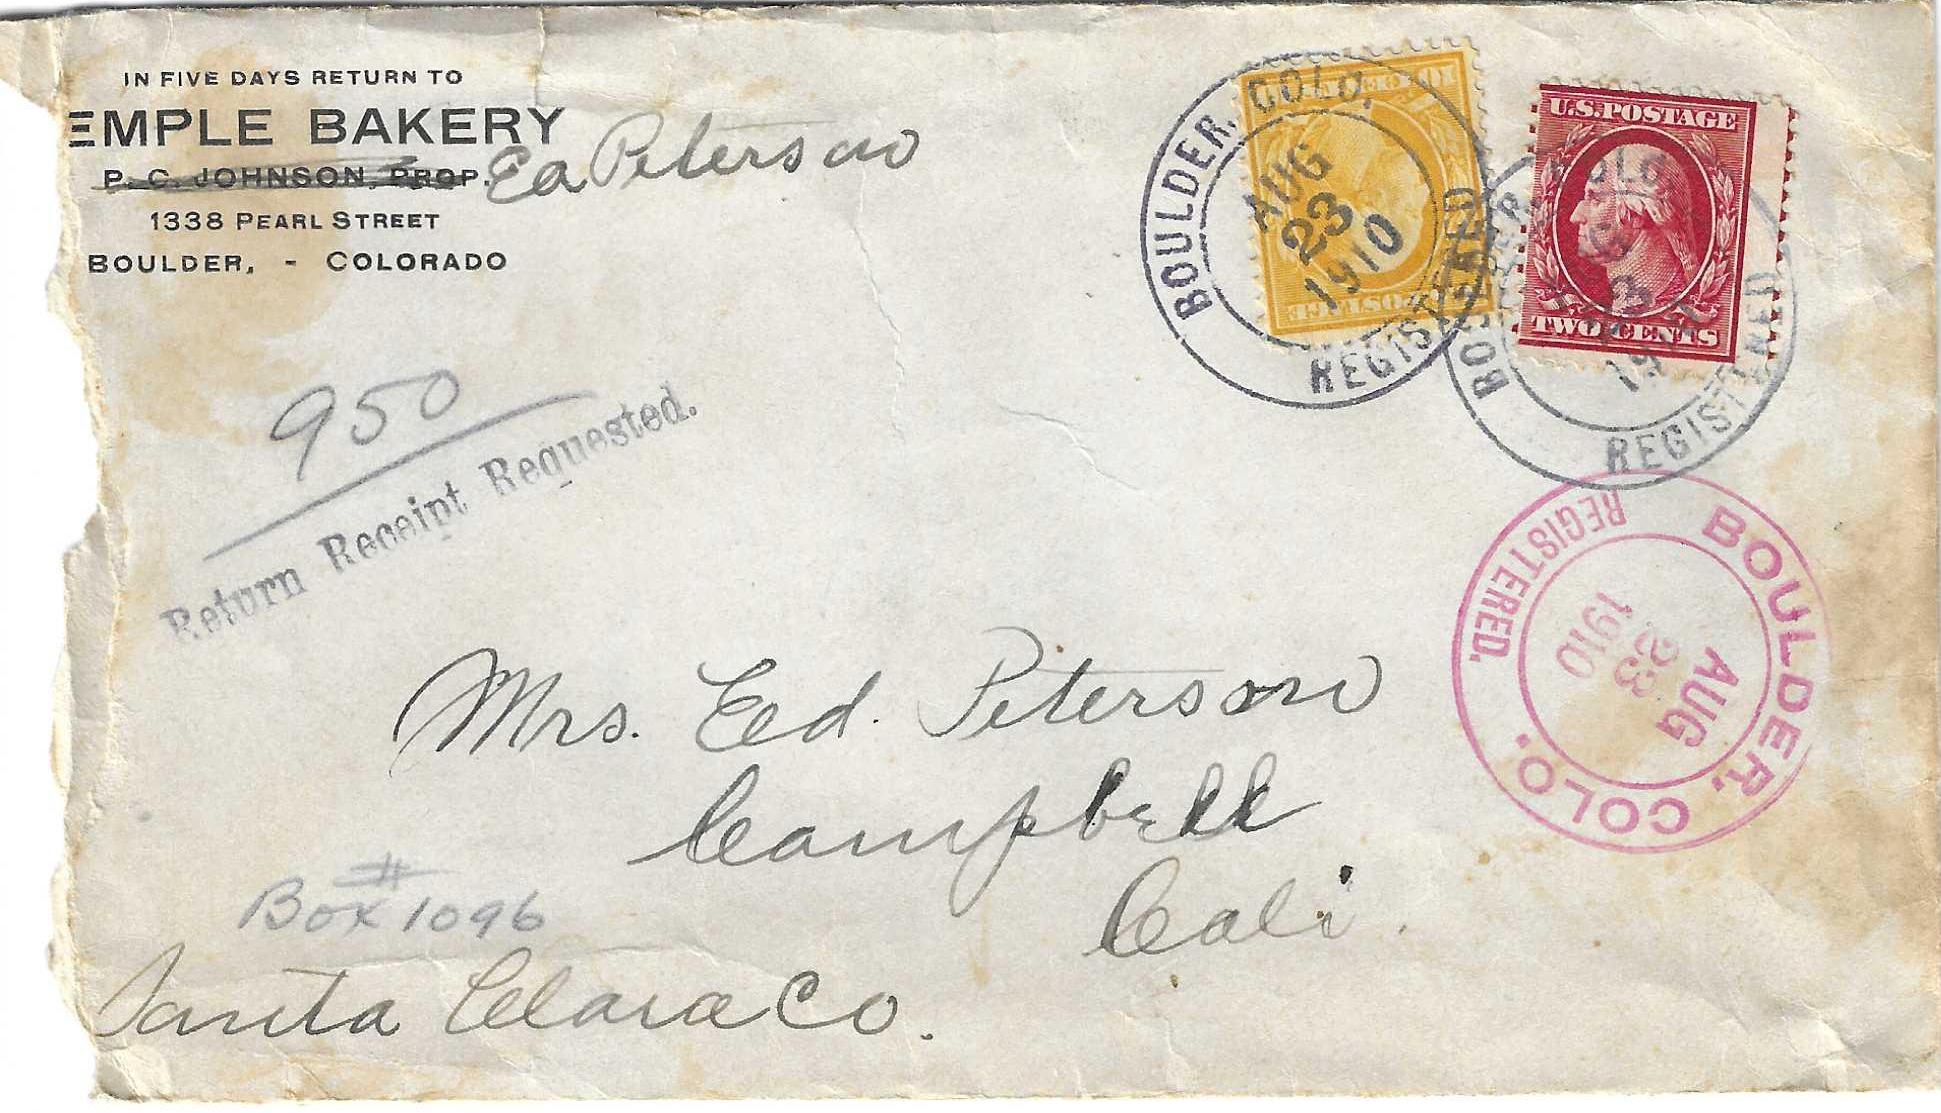 IN FIVE DAYS RETURN TO
EMPLE BAKERY
P. C. JOHNSON, PROP. Ed Peterson
1338 PEARL STREET
BOULDER, - COLORADO
BOULDER, COLO.
AUG
23
1910
REGISTERED
10 CENTS 10
U.S. POSTAGE
U.S. POSTAGE
TWO CENTS
BOULDER, COLO.
AUG
23
1910
REGISTERED
950
Return Receipt Requested.
BOULDER, COLO.
AUG
23
1910
REGISTERED.
Mrs. Ed. Peterson
Campbell
Cali.
#
Box 1096
Santa Clara Co.